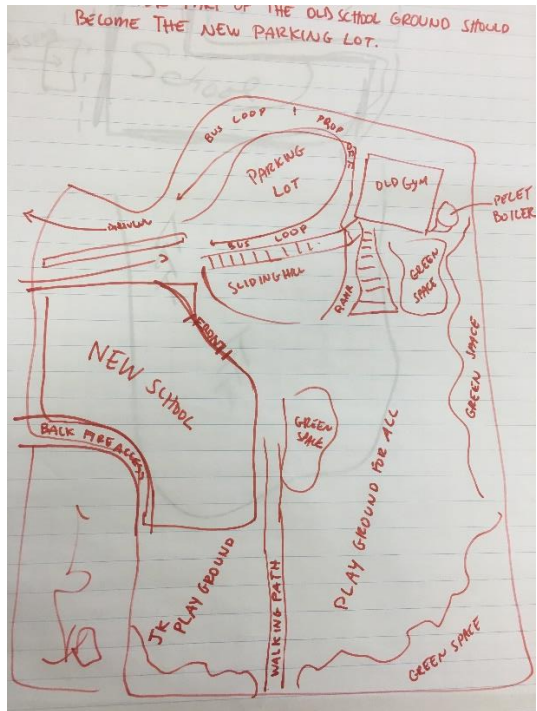 PART OF THE OLD SCHOOL GROUND SHOULD
BECOME THE NEW PARKING LOT.
School
BUS LOOP + DROP OFF
PARKING
LOT
OLD GYM
PELET
BOILER
BUS LOOP
SLIDING HILL
RAMP
GREEN
SPACE
GREEN SPACE
FRONT
NEW SCHOOL
BACK FIRE ACCESS
GREEN
SPACE
PLAY GROUND FOR ALL
JK
PLAY GROUND
WALKING PATH
GREEN SPACE